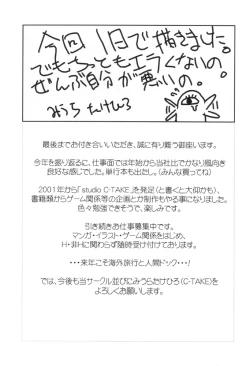 今回1日で描きました。
でもちっともエラくないの
ぜんぶ自分が悪いの。
みうら たけひろ
最後までお付き合いいただき、誠に有り難う御座います。
今年を振り返るに、仕事面では年始から当社比でかなり風向き
良好な感じでした。単行本も出たし。(みんな買ってね)
2001年から「studio C-TAKE」を発足(と書くと大仰かも)、
書籍類からゲーム関係等の企画とか制作もやる事になりました。
色々勉強できそうで、楽しみです。
引き続きお仕事募集中です。
マンガ・イラスト・ゲーム関係をはじめ、
H・非Hに関わらず随時受け付けております。
・・・来年こそ海外旅行と人間ドック・・・!
では、今後も当サークル並びにみうらたけひろ(C-TAKE)を
よろしくお願いします。